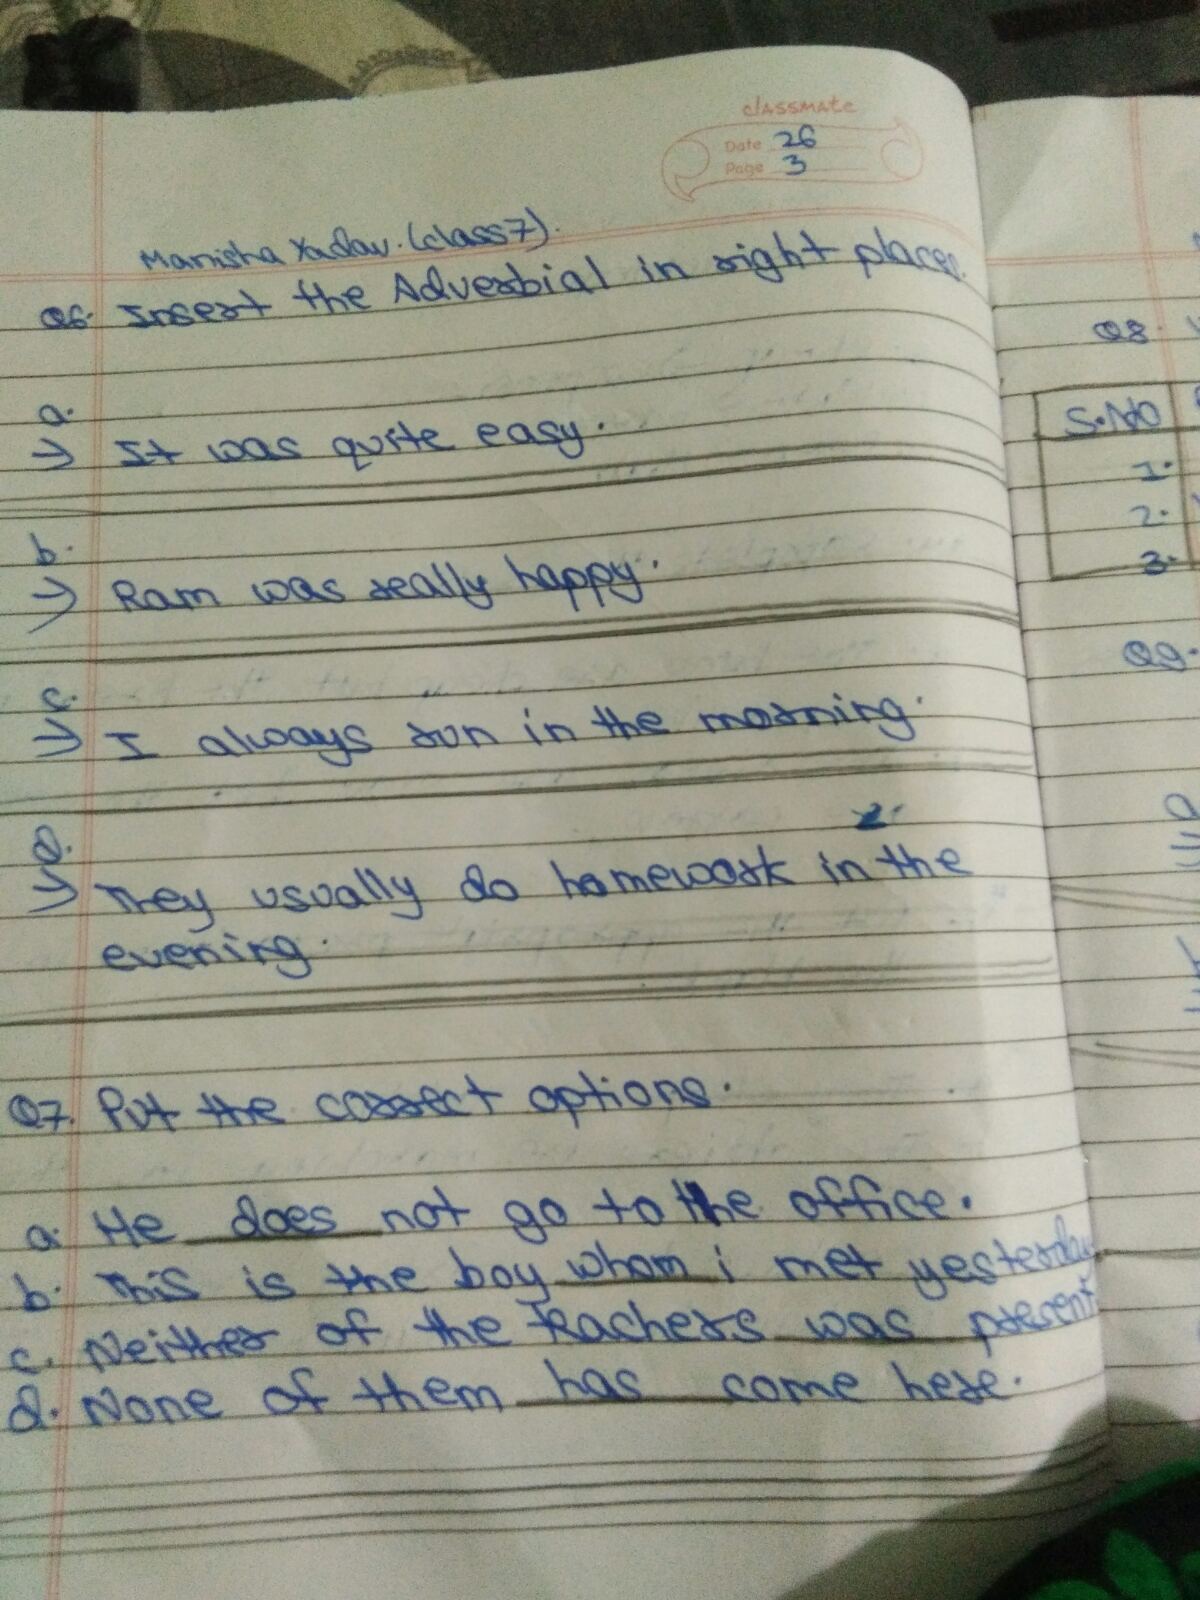 classmate
Date 26
Page 3
Manisha Yadav. (class 7).
Q6. Insert the Adverbial in right places.
a.
→ It was quite easy.
b.
→ Ram was really happy.
c.
→ I always run in the morning.
d.
→ They usually do homework in the
evening.
Q7. Put the correct options.
a. He does not go to the office.
b. This is the boy whom i met yesterday
c. Neither of the teachers was present
d. None of them has come here.
Q8.
S.No
1.
2.
3.
Q9.